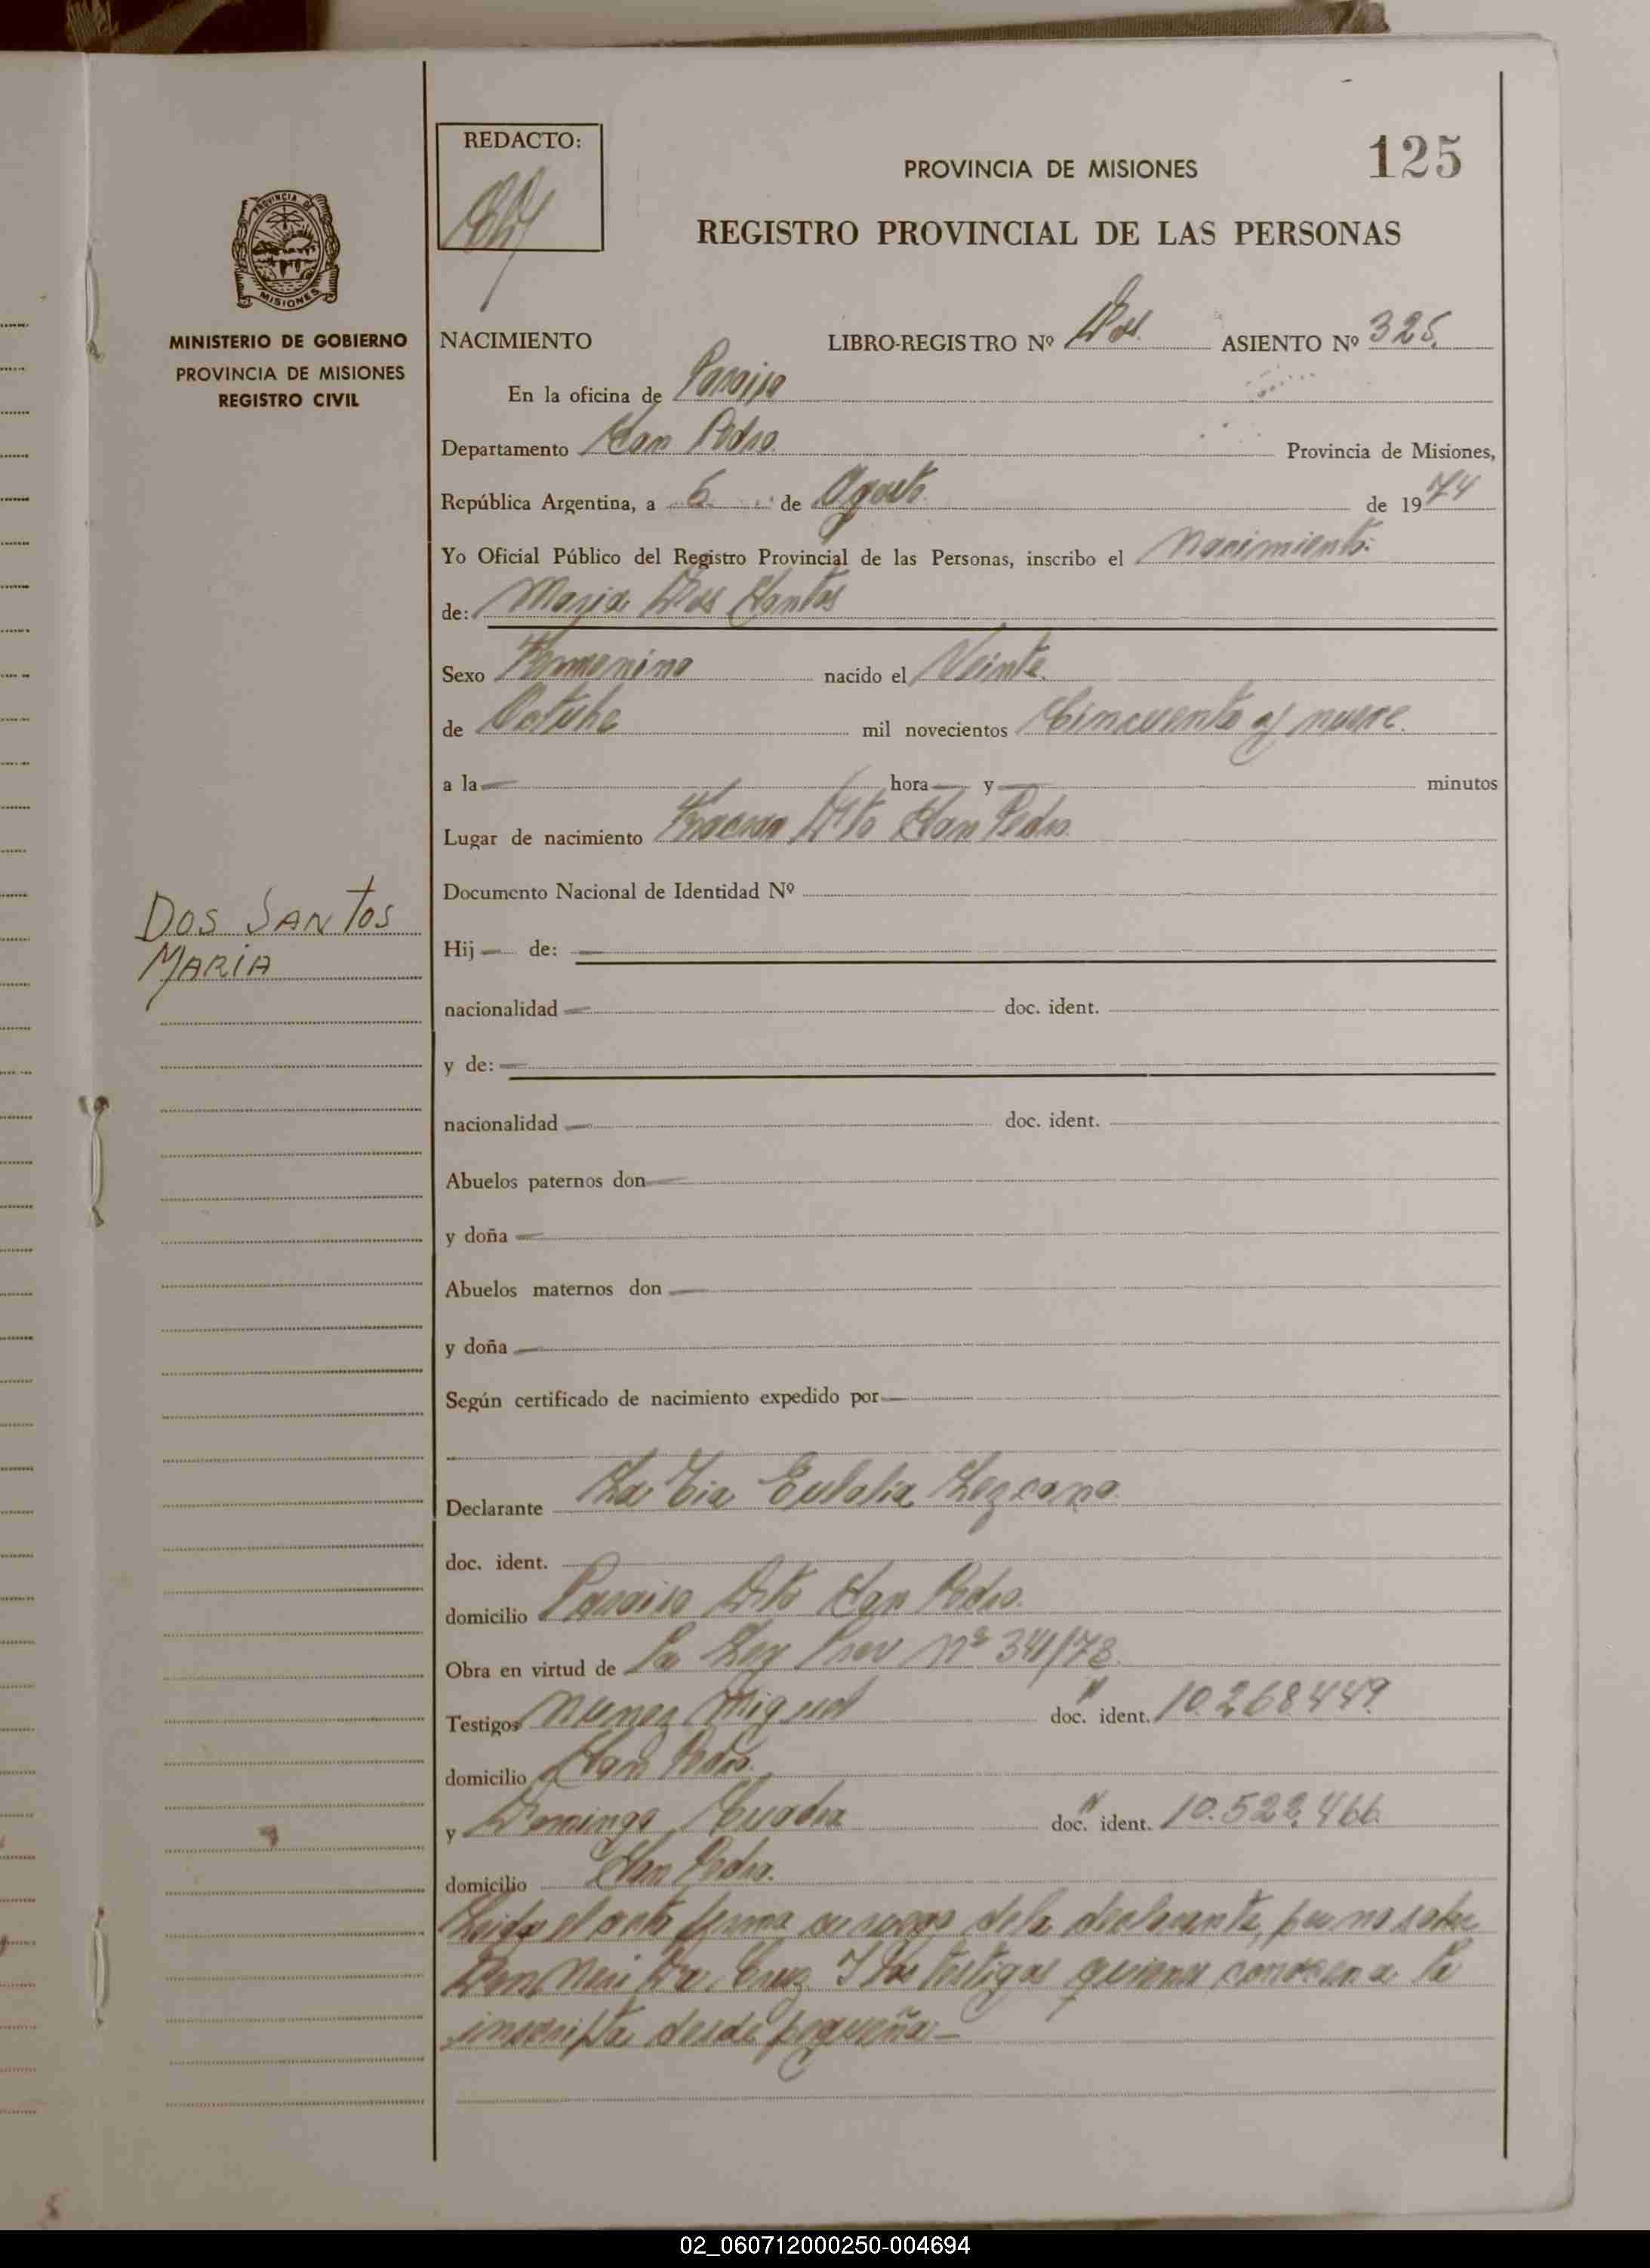 REDACTO:
125
PROVINCIA DE MISIONES
REGISTRO PROVINCIAL DE LAS PERSONAS
PROVINCIA DE
MISIONES
MINISTERIO DE GOBIERNO
PROVINCIA DE MISIONES
REGISTRO CIVIL
NACIMIENTO LIBRO-REGISTRO Nº Dos. ASIENTO Nº 325.
En la oficina de Paraiso
Departamento San Pedro Provincia de Misiones,
República Argentina, a 6 de Agosto de 1974
Yo Oficial Público del Registro Provincial de las Personas, inscribo el Nacimiento:
de: Maria Dos Santos
Sexo Femenino nacido el Veinte
de Octubre mil novecientos Cincuenta y nueve.
a la — hora — y — minutos
Lugar de nacimiento Fracran Dto San Pedro
Documento Nacional de Identidad Nº
DOS SANTOS
MARIA
Hij — de: —
nacionalidad — doc. ident.
y de: —
nacionalidad — doc. ident.
Abuelos paternos don —
y doña —
Abuelos maternos don —
y doña —
Según certificado de nacimiento expedido por —
Declarante La Tia Eulalia Lezcano
doc. ident. —
domicilio Paraiso Dto San Pedro.
Obra en virtud de La Ley Prov Nº 341/73
Testigos Nunez Miguel doc. ident. 10.268.449
domicilio San Pedro.
y Domingo doc. ident. 10.522.466
domicilio San Pedro.
Leida el acta firma a ruego de la declarante, por no saber
Don Da Cruz Y los testigos quienes conocen a la
inscripta desde pequeña —
02_060712000250-004694